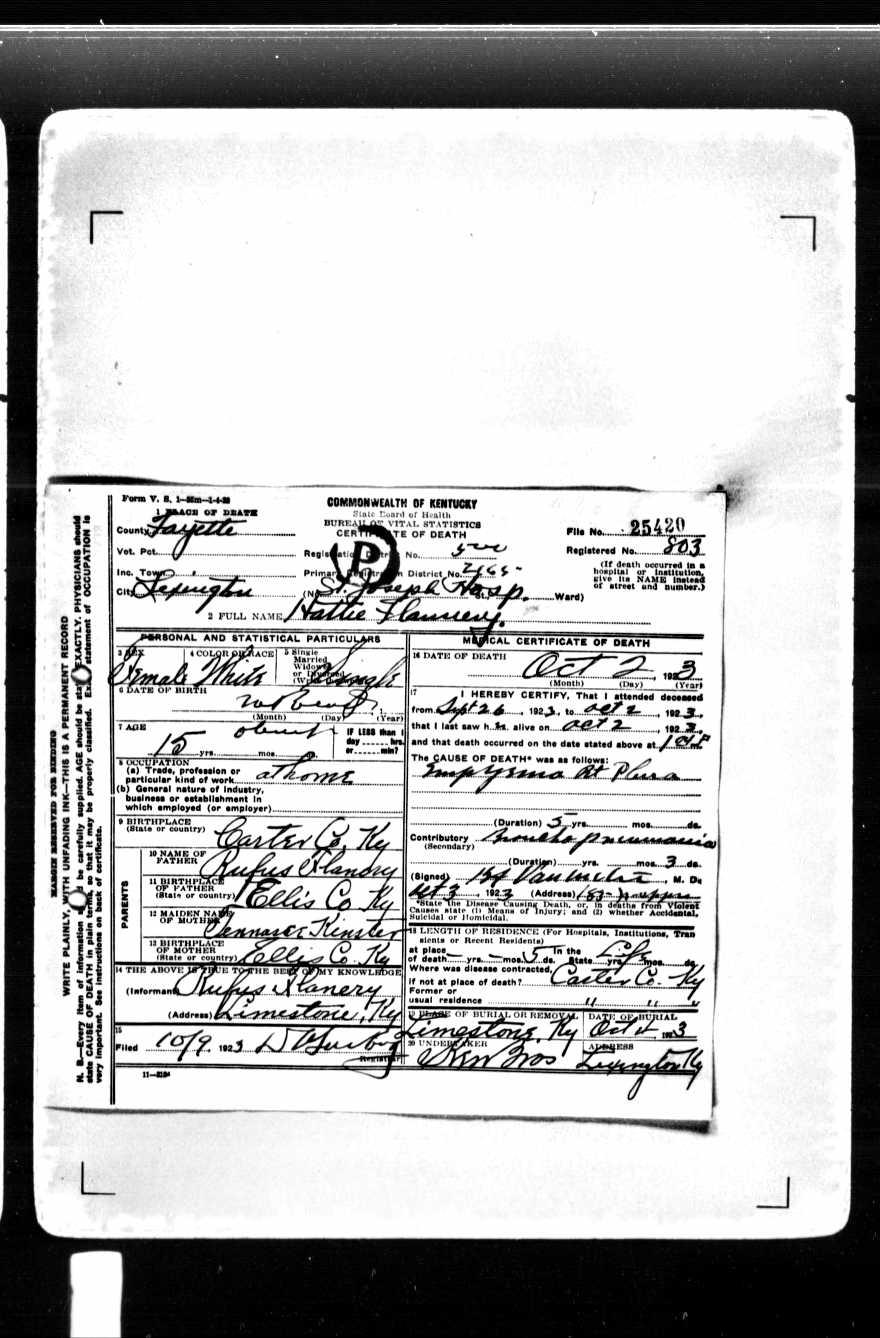 Form V. S. 1
COMMONWEALTH OF KENTUCKY
State Board of Health
BUREAU OF VITAL STATISTICS
CERTIFICATE OF DEATH
P
File No. 25420
Registered No. 803
(If death occurred in a hospital or institution, give its NAME instead of street and number.)
1 PLACE OF DEATH
County Fayette
Vot. Pct.
Registration District No.
Inc. Town
Primary Registration District No. 2165
City Lexington (No. St. Joseph Hosp. St. Ward)
2 FULL NAME Hattie Flannery.
PERSONAL AND STATISTICAL PARTICULARS
3 SEX Female
4 COLOR OR RACE White
5 Single Married Widowed or Divorced (Write the word) Single
6 DATE OF BIRTH
(Month) (Day) (Year)
7 AGE about
15 yrs. mos.
IF LESS than 1 day hrs. or min?
8 OCCUPATION
(a) Trade, profession or particular kind of work at home
(b) General nature of industry, business or establishment in which employed (or employer)
9 BIRTHPLACE
(State or country) Carter Co. Ky
PARENTS
10 NAME OF FATHER Rufus Flanery
11 BIRTHPLACE OF FATHER
(State or country) Ellis Co Ky
12 MAIDEN NAME OF MOTHER
13 BIRTHPLACE OF MOTHER
(State or country) Ellis Co. Ky
14 THE ABOVE IS TRUE TO THE BEST OF MY KNOWLEDGE
(Informant) Rufus Flanery
(Address) Limestone, Ky
15
Filed 10/9 1923
Registrar
11-3184
MEDICAL CERTIFICATE OF DEATH
16 DATE OF DEATH Oct 2, 1923
(Month) (Day) (Year)
17 I HEREBY CERTIFY, That I attended deceased
from Sept 26, 1923, to Oct 2, 1923,
that I last saw h alive on Oct 2, 1923,
and that death occurred on the date stated above at
The CAUSE OF DEATH* was as follows:
Empyema Rt Plura
(Duration) 5 yrs. mos. ds.
Contributory Broncho pneumonia
(Secondary)
(Duration) yrs. mos. 3 ds.
(Signed) M. D.
Oct 3, 1923 (Address)
*State the Disease Causing Death, or, in deaths from Violent Causes state (1) Means of Injury; and (2) whether Accidental, Suicidal or Homicidal.
18 LENGTH OF RESIDENCE (For Hospitals, Institutions, Transients or Recent Residents)
at place of death — yrs. — mos. 5 ds. In the State Life yrs. mos. ds.
Where was disease contracted, if not at place of death? Carter Co. Ky
Former or usual residence " " "
19 PLACE OF BURIAL OR REMOVAL Limestone, Ky
DATE OF BURIAL Oct 1923
20 UNDERTAKER Kerr Bros
ADDRESS Lexington Ky
MARGIN RESERVED FOR BINDING
WRITE PLAINLY, WITH UNFADING INK—THIS IS A PERMANENT RECORD
N. B.—Every item of information should be carefully supplied. AGE should be stated EXACTLY. PHYSICIANS should
state CAUSE OF DEATH in plain terms, so that it may be properly classified. Exact statement of OCCUPATION is
very important. See instructions on back of certificate.